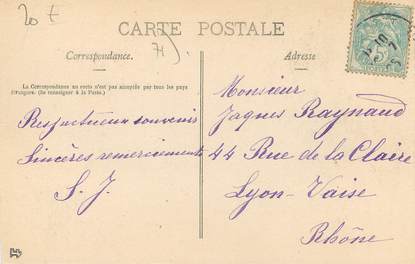 20 €
CARTE POSTALE
Correspondance.
Adresse
La Correspondance au recto n'est pas acceptée par tous les pays
étrangers. (Se renseigner à la Poste.)
Respectueux souvenir
Sincères remerciements
S. J.
Monsieur
Jaques Raynaud
44 Rue de la Claire
Lyon-Vaise
Rhône